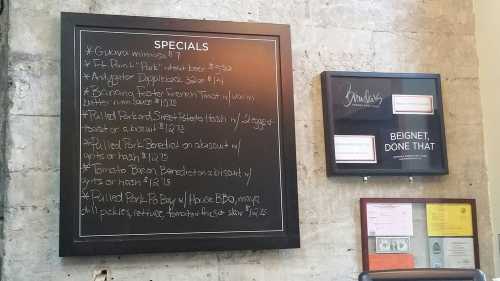 SPECIALS
* Guava mimosa $7
* Ft. Point "Park" wheat beer
* Andygator Dopplebock 22oz
* Banana Foster French Toast w/ warm
butter rum sauce $10.75
* Pulled Pork and Sweet Potato Hash w/ 2 eggs +
toast or a biscuit $12.75
* Pulled Pork Benedict on a biscuit w/
grits or hash $12.75
* Tomato Bacon Benedict on a biscuit w/
grits or hash $12.75
* Pulled Pork Po Boy w/ House BBQ, mayo,
dill pickles, lettuce, tomato + $12.75
Brenda's
BEIGNET,
DONE THAT